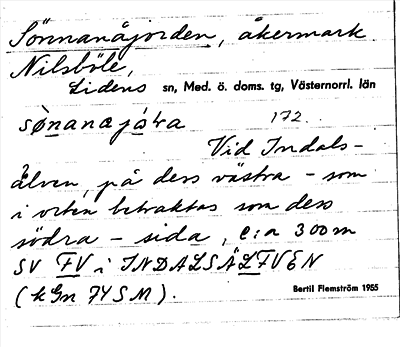 Sönnanåjorden, åkermark
Nilsböle,
Lidens sn, Med. ö. doms. tg, Västernorrl. län
172.
Vid Indals-
älven, på dess västra - som
i orten betraktas som dess
södra - sida, c:a 300 m
SV FV i INDALSÄLFVEN
(kGn 74 SM).
Bertil Flemström 1955